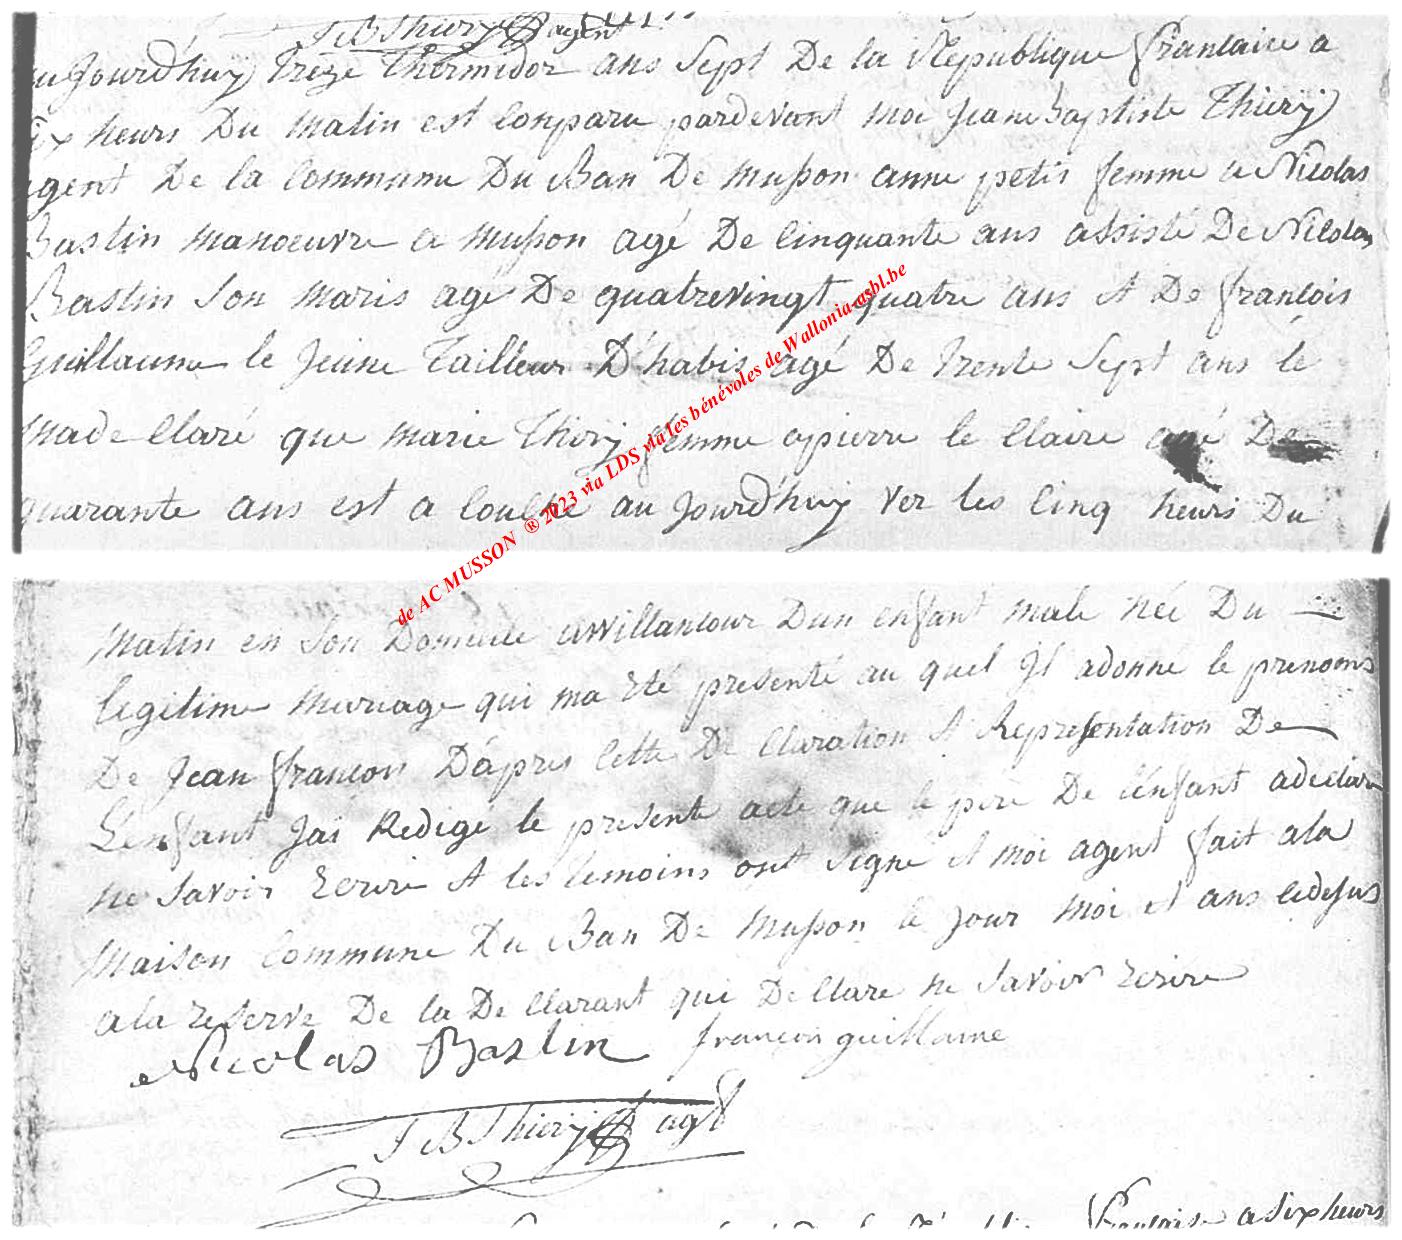 JB Thiery agent
aujourd'huy Treze Thermidor ans Sept De la Republique francaice a
Six heurs Du Matin est Conparu pardevant moi Jean Baptiste Thiery
agent De la Commune Du Ban De Musson anne petit femme a Nicolas
Bastin manoeuvre a Musson agé De Cinquante ans assisté De Nicolas
Bastin Son Maris age De quatrevingt quatre ans et De francois
Guillaume le Jeune Tailleur D'habis agé De Trente Sept ans le
Made Claré que Marie Thiery femme apierre le Claire agé De
quarante ans est a Couché au Jourd'huy ver les Cinq heurs Du
Matin en Son Domicile a Willancour Dun enfant Male Neé Du
legitime Mariage qui ma Eté presenté au quel Il adonné le prenoms
De Jean francois D'apres Cette De Claration et Representation De
L'enfant Jai Redigé le presente acte que le pere De L'enfant adeclare
ne Savoir Ecrire et les temoins ont Signé et moi agent fait ala
Maison Commune Du Ban De Musson le Jour Moi et ans cidesus
ala reserve De la De Clarant qui De Clare ne Savoir ecrire
Nicolas Bastin francois guillaume
J B Thiery agt
francaise a Six heurs
de AC MUSSON ® 2023 via LDS via les bénévoles de Wallonia-asbl.be